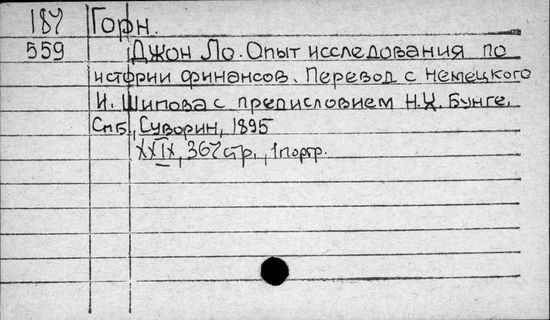 187 Горн.
559 Джон Ло. Опыт исследования по
истории финансов. Перевод с немецкого
И. Шипова с предисловием Н.Х. Бунге.
Спб., Суворин, 1895
XXIX, 367 стр., 1 портр.